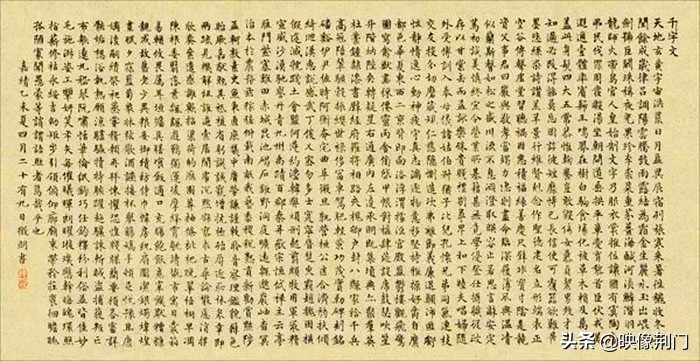 千字文
天地玄黃宇宙洪荒日月盈昃辰宿列張寒來暑往秋收冬藏
閏餘成歲律呂調陽雲騰致雨露結為霜金生麗水玉出崑岡
劍號巨闕珠稱夜光果珍李柰菜重芥薑海鹹河淡鱗潛羽翔
龍師火帝鳥官人皇始制文字乃服衣裳推位讓國有虞陶唐
弔民伐罪周發殷湯坐朝問道垂拱平章愛育黎首臣伏戎羌
遐邇壹體率賓歸王鳴鳳在樹白駒食場化被草木賴及萬方
蓋此身髮四大五常恭惟鞠養豈敢毀傷女慕貞絜男效才良
知過必改得能莫忘罔談彼短靡恃己長信使可覆器欲難量
墨悲絲染詩讚羔羊景行維賢克念作聖德建名立形端表正
空谷傳聲虛堂習聽禍因惡積福緣善慶尺璧非寶寸陰是競
資父事君曰嚴與敬孝當竭力忠則盡命臨深履薄夙興溫凊
似蘭斯馨如松之盛川流不息淵澄取映容止若思言辭安定
篤初誠美慎終宜令榮業所基籍甚無竟學優登仕攝職從政
存以甘棠去而益詠樂殊貴賤禮別尊卑上和下睦夫唱婦隨
外受傅訓入奉母儀諸姑伯叔猶子比兒孔懷兄弟同氣連枝
交友投分切磨箴規仁慈隱惻造次弗離節義廉退顛沛匪虧
性靜情逸心動神疲守真志滿逐物意移堅持雅操好爵自縻
都邑華夏東西二京背邙面洛浮渭據涇宮殿盤鬱樓觀飛驚
圖寫禽獸畫彩仙靈丙舍傍啟甲帳對楹肆筵設席鼓瑟吹笙
升階納陛弁轉疑星右通廣內左達承明既集墳典亦聚群英
杜稿鍾隸漆書壁經府羅將相路俠槐卿戶封八縣家給千兵
高冠陪輦驅轂振纓世祿侈富車駕肥輕策功茂實勒碑刻銘
磻谿伊尹佐時阿衡奄宅曲阜微旦孰營桓公匡合濟弱扶傾
綺迴漢惠說感武丁俊乂密勿多士寔寧晉楚更霸趙魏困橫
假途滅虢踐土會盟何遵約法韓弊煩刑起翦頗牧用軍最精
宣威沙漠馳譽丹青九州禹跡百郡秦并嶽宗恒岱禪主云亭
雁門紫塞雞田赤城昆池碣石鉅野洞庭曠遠綿邈巖岫杳冥
治本於農務茲稼穡俶載南畝我藝黍稷稅熟貢新勸賞黜陟
孟軻敦素史魚秉直庶幾中庸勞謙謹敕聆音察理鑒貌辨色
貽厥嘉猷勉其祗植省躬譏誡寵增抗極殆辱近恥林皋幸即
兩疏見機解組誰逼索居閒處沉默寂寥求古尋論散慮逍遙
欣奏累遣慼謝歡招渠荷的歷園莽抽條枇杷晚翠梧桐早凋
陳根委翳落葉飄颻遊鵾獨運凌摩絳霄耽讀翫市寓目囊箱
易輶攸畏屬耳垣牆具膳餐飯適口充腸飽飫烹宰飢厭糟糠
親戚故舊老少異糧妾御績紡侍巾帷房紈扇圓潔銀燭煒煌
晝眠夕寐藍筍象床弦歌酒讌接杯舉觴矯手頓足悅豫且康
嫡後嗣續祭祀烝嘗稽顙再拜悚懼恐惶牋牒簡要顧答審詳
骸垢想浴執熱願涼驢騾犢特駭躍超驤誅斬賊盜捕獲叛亡
布射遼丸嵇琴阮嘯恬筆倫紙鈞巧任釣釋紛利俗並皆佳妙
毛施淑姿工顰妍笑年矢每催曦暉朗曜璇璣懸斡晦魄環照
指薪修祜永綏吉劭矩步引領俯仰廊廟束帶矜莊徘徊瞻眺
孤陋寡聞愚蒙等誚謂語助者焉哉乎也
嘉靖乙未夏四月二十有九日徵明書
头条 @映像荆门